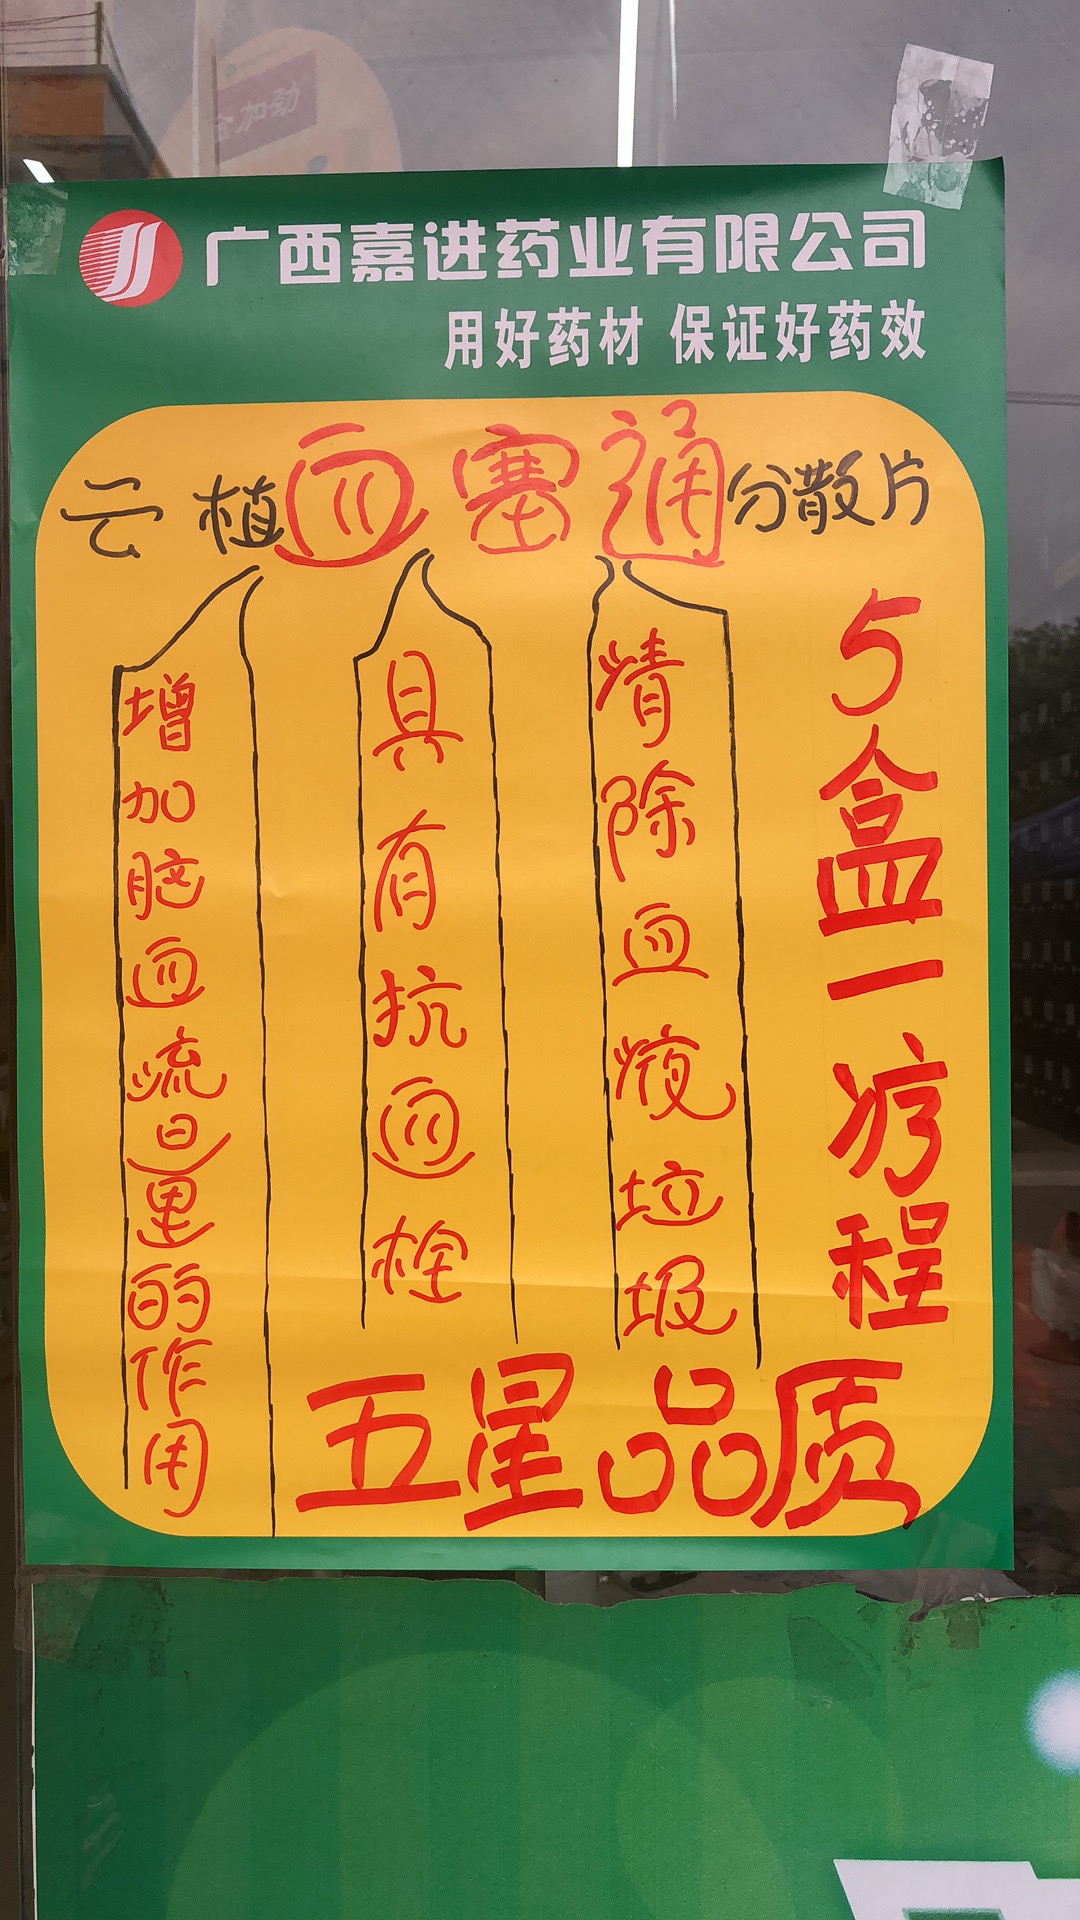 全加劲
广西嘉进药业有限公司
用好药材 保证好药效
云植血塞通分散片
增加脑血流量的作用
具有抗血栓
清除血液垃圾
5盒一疗程
五星品质